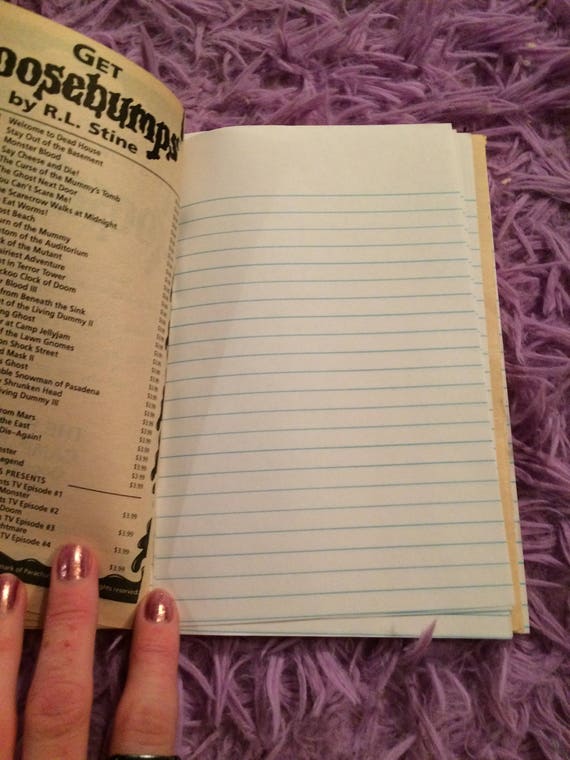 GET
oosebumps
by R.L. Stine
Welcome to Dead House
Stay Out of the Basement
Monster Blood
Say Cheese and Die!
The Curse of the Mummy's Tomb
The Ghost Next Door
ou Can't Scare Me!
e Scarecrow Walks at Midnight
Eat Worms!
ost Beach
urn of the Mummy
ntom of the Auditorium
k of the Mutant
airiest Adventure
ht in Terror Tower
ckoo Clock of Doom
Blood III
from Beneath the Sink
t of the Living Dummy II
ng Ghost
r at Camp Jellyjam
of the Lawn Gnomes
on Shock Street
d Mask II
s Ghost
ble Snowman of Pasadena
Shrunken Head
iving Dummy III
rom Mars
the East
Die–Again!
ster
egend
S PRESENTS
ts TV Episode #1
Monster
s TV Episode #2 $3.99
Doom
TV Episode #3 $3.99
htmare
TV Episode #4 $3.99
$3.99
mark of Parach ghts reserved.